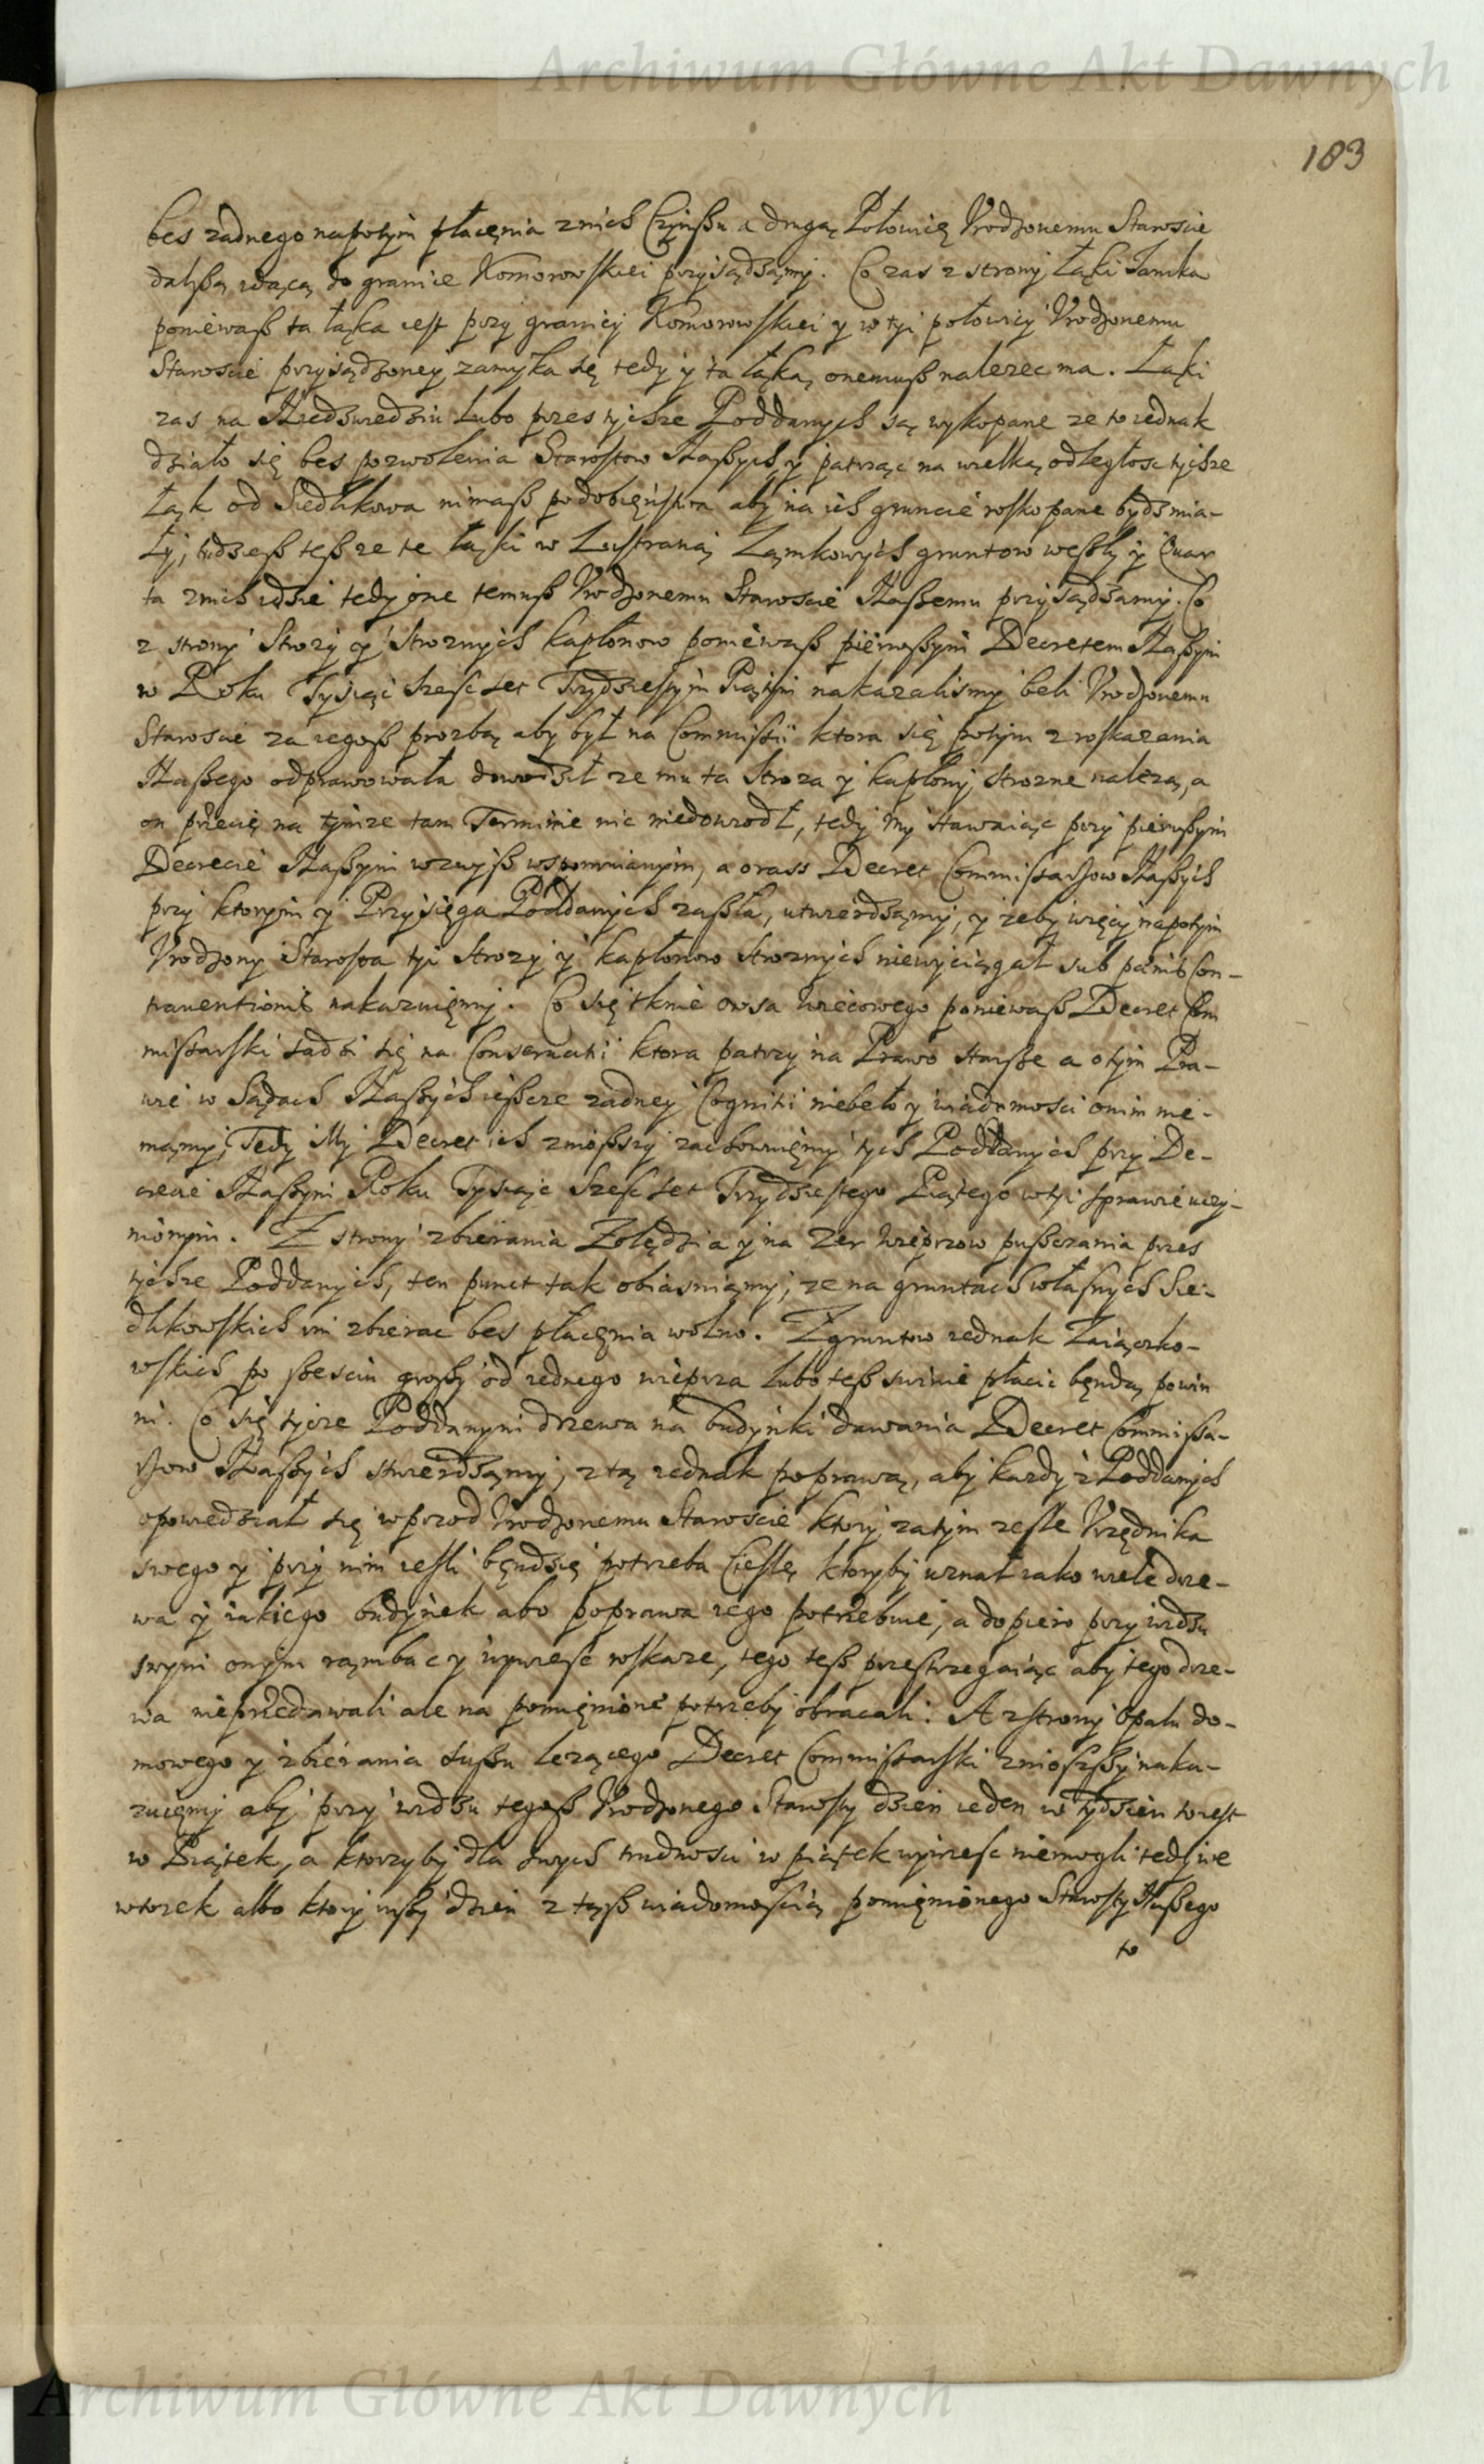 Archiwum Główne Akt Dawnych
183
bes zadnego napotym płacęnia z nich Czinßu a drugą Połowicę Vrodzonemu Staroscie
dalßą idącą do granice Komorowskiei przysądzamy. Co zas z strony Łąki Janika
poniewaß ta łąka iest przy granicy Komorowskiei y w tyi połowicy Vrodzonemu
Staroscie przysądzoney zamyka się tedy y ta łąka, onemuß nalezec ma. Łąki
zas na Niedzwiedziu lubo przes tychze Poddanych są wykopane ze to iednak
działo się bes pozwolenia Starostow Naßych y patrząc na wielką odległosc tychze
Łąk od Siedlikowa nimaß podobięństwa aby na ich gruncie roskopane bydz mia-
ły, tudzieß teß ze te łąki w Lustracią Zamkowych gruntow weßły y Quar
ta z nich idzie tedy one temuß Vrodzonemu Staroscie Naßemu przysądzamy. Co
z strony Strozy y Stroznych kapłonow poniewaß pierwßym Decretem Naßym
w Roku Tysiąc Szesc Set Trzydziestym Piątym nakazalismy beli Vrodzonemu
Staroscie za iegoß prozbą aby był na Commissii ktora się potym z roskazania
Naßego odprawowała dowodził ze mu ta Stroza y kapłony Strozne nalezą, a
on przecię na tymze tam Terminie nic niedowodł, tedy My stawaiąc przy pierwßym
Decrecie Naßym wzwyß wspomnianym, a orass Decret Commissarzow Naßych
przy ktorym y Przysięga Poddanych zaßła, utwierdzamy, y zeby więcy napotym
Vrodzony Starosta tyi Strozy y kapłonow Stroznych niewyciągał sub pœnis Con-
traventionis nakazuięmy. Co się tknie owsa wiecowego poniewaß Decret Com
missarski sadzi się na Conservatii ktora patrzy na Prawo starße a o tym Pra-
wie w Sądach Naßych ießcze zadney Cognitii niebeło y wiadomosci o nim nie-
mamy, Tedy My Decret ich zniosszy zachowuięmy tych Poddanych przy De-
crecie Naßym Roku Tysiąc Szesc Set Trzydziestego Piątego w tyi sprawie uczy-
nionym. Z strony zbierania Zołędzia y na Zer wieprzow pußczania przes
tychze Poddanych, ten punct tak obiasniamy, ze na gruntach własnych Sie-
dlikowskich im zbierac bes płacęnia wolno. Z gruntow iednak Zaiączko-
wskich po ßesciu groszy od iednego wieprza lubo teß swinie płacic będą powin
ni. Co się tycze Poddanym drzewa na budynki dawania Decret Commissa-
rzow Naßych stwierdzamy, z tą iednak poprawą, aby kazdy z Poddanych
opowiedział się wprzod Vrodzonemu Staroscie ktory zatym zesle Vrzędnika
swego y przy nim iesli będzię potrzeba Cieslę ktoryby uznał iako wiele drze-
wa y iakiego budynek abo poprawa iego potrzebuie, a dopiero przy widzu
swym onym rąmbac y wywiesc wskaze, tego teß przestrzegaiąc aby tego drze-
wa nieprzedawali ale na pomięnione potrzeby obracali. A z strony opału do-
mowego y zbierania sußu lezącego Decret Commissarski zniosßy naka-
zuięmy aby przy widzu tegoß Vrodzonego Starosty dzien ieden w tydzien to iest
w Piątek, a ktorzyby dla swych trudnosci w piątek wywiesc niemogli tedy we
wtorek albo ktory inßy dzien z tąß wiadomoscią pomięnionego Starosty Naßego
to
Archiwum Główne Akt Dawnych